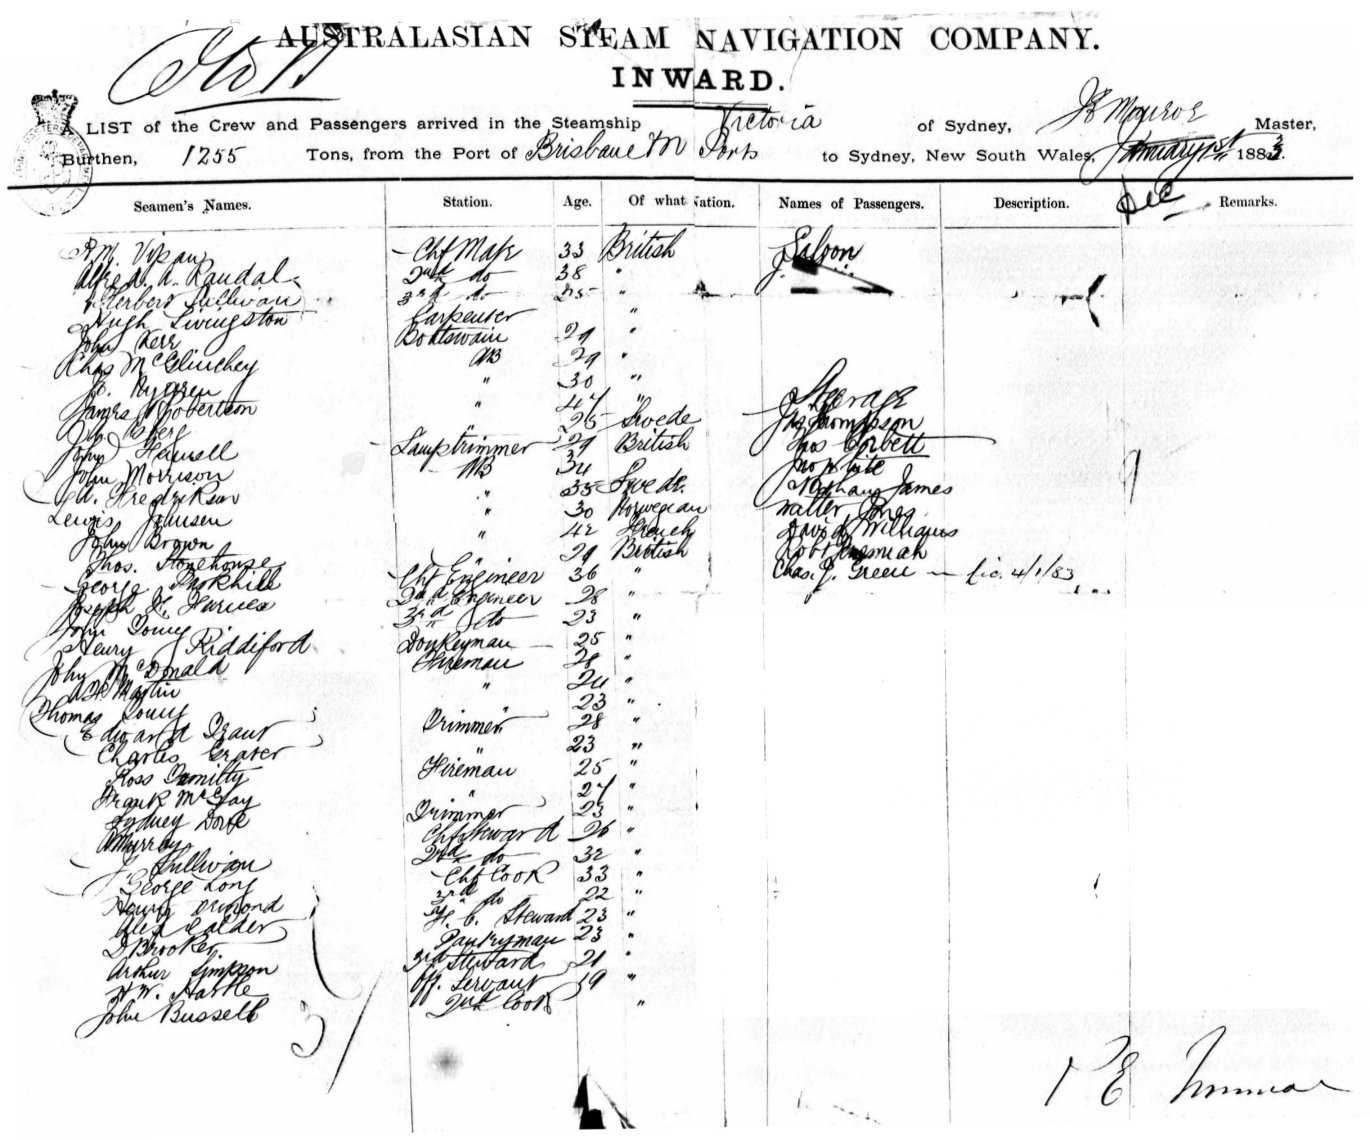 AUSTRALASIAN STEAM NAVIGATION COMPANY.
INWARD.
A LIST of the Crew and Passengers arrived in the Steamship Victoria of Sydney, J B Monroe Master,
Burthen, 1255 Tons, from the Port of Brisbane & Ports to Sydney, New South Wales, January 1st 1883.
Seamen's Names. Station. Age. Of what Nation. Names of Passengers. Description. Remarks.
Dec
H.M. Vipan Chf Mate 33 British Saloon
Alfred A. Randal 2nd do 38 "
Herbert Sullivan 3rd do 25 "
Hugh Livingston Carpenter "
John Kerr Boatswain 29 "
Chas McGlinchey AB 29 "
J. " 30 " Steerage
James Robertson " 47 "
" 25 Swede Jas Thompson
John Lamptrimmer 29 British Thos Corbett
John Morrison AB 34 Jno White
Fredrikson " 35 Swede Nathan James
Lewis Johnsen " 30 Norwegian Walter Jones
John Brown " 42 French David Williams
Thos. Stonehouse " 29 British Robt Jeremiah
George Chf Engineer 36 " Chas. J. Green — Lic. 4/1/83
Joseph 2nd Engineer 28 "
John 3rd do 23 "
Henry Riddiford Donkeyman 25 "
John McDonald Fireman 28 "
Martin " 24 "
Thomas " 23 "
Edward Grant Trimmer 28 "
Charles " 23 "
Ross Fireman 25 "
Frank " 27 "
Sydney Trimmer 23 "
A Murray Chf Steward 26 "
J Sullivan 2nd do 32 "
George Long Chf Cook 33 "
Henry Ormond 3rd do 22 "
Alex Calder F. C. Steward 23 "
D Brooker Pantryman 23 "
Arthur Simpson 3rd Steward 21 "
H.W. Hartle Off. Servant 19 "
John Bussell 2nd Cook "